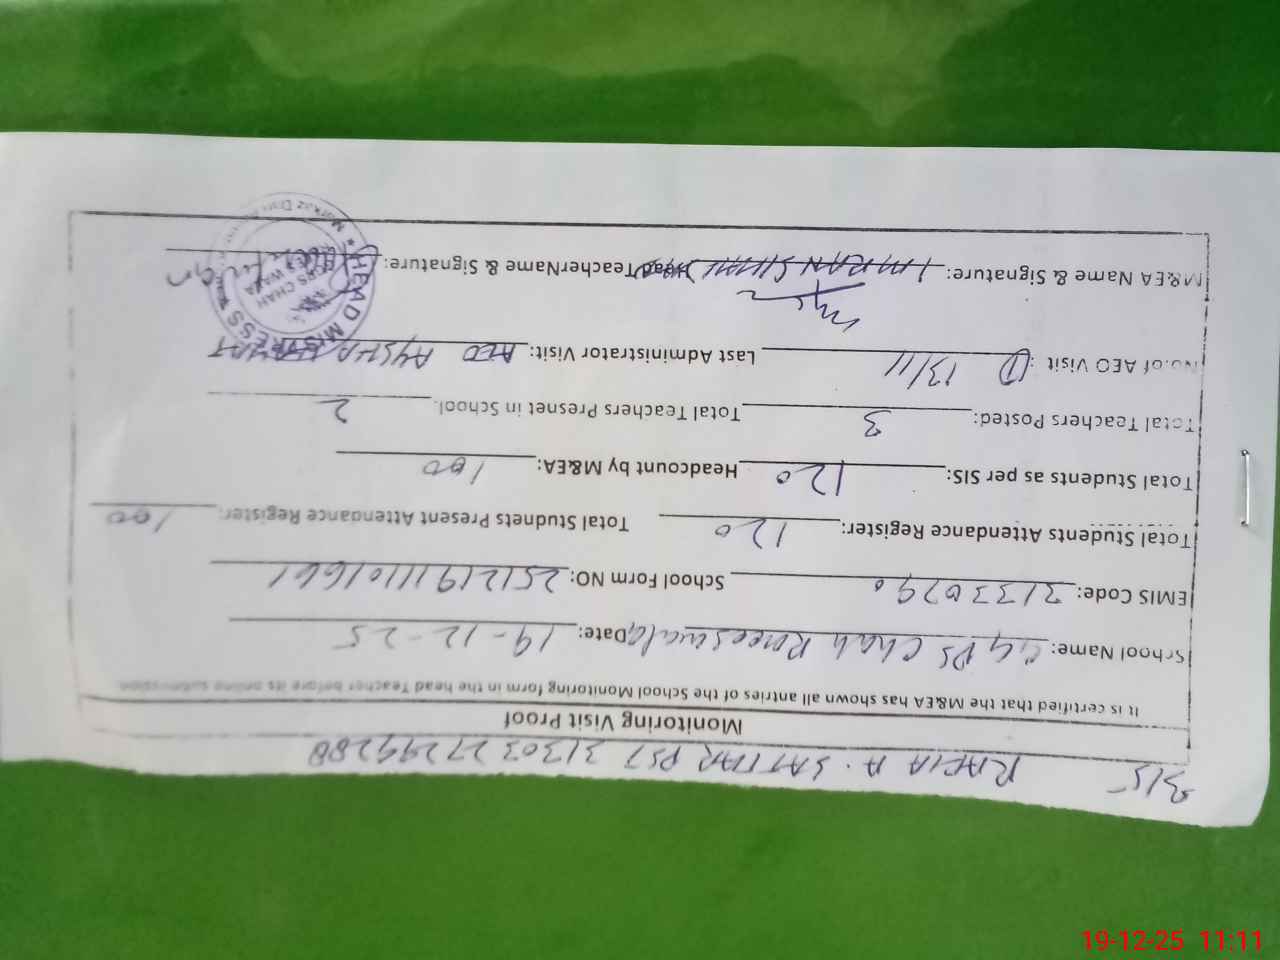 3/5 RAFIA A. SATTAR PST 3130327299288
Monitoring Visit Proof
It is certified that the M&EA has shown all antries of the School Monitoring form in the head Teacher before its online submission
School Name: GGPS Chah Date: 19-12-25
EMIS Code: 31330290 School Form NO: 251219111101661
Total Students Attendance Register: 120 Total Studnets Present Attendance Register: 100
Total Students as per SIS: 120 Headcount by M&EA: 100
Total Teachers Posted: 3 Total Teachers Presnet in School. 2
No.of AEO Visit : 1 13/11 Last Administrator Visit: AEO AYSHA
M&EA Name & Signature: IMRAN Head TeacherName & Signature:
HEAD MISTRESS
GPS CHAH
Markaz
19-12-25 11:11